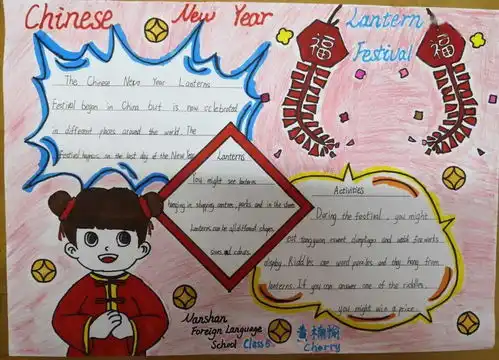 Chinese New Year
Lantern
Festival
福
福
The Chinese New Year Lanterns
Festival began in China but is now celebrated
in different places around the world. The
Festival happens on the last day of the New Year
Lanterns
You might see lanterns
hanging in shopping centers, parks and in the streets
Lanterns can be all different shapes
sizes and colours.
Activities
During the festival, you might
eat tangyuan sweet dumplings and watch fireworks
display. Riddles are word puzzles and they hang from
lanterns. If you can answer one of the riddles,
you might win a prize.
Nanshan
Foreign Language
School Class 5
Cherry